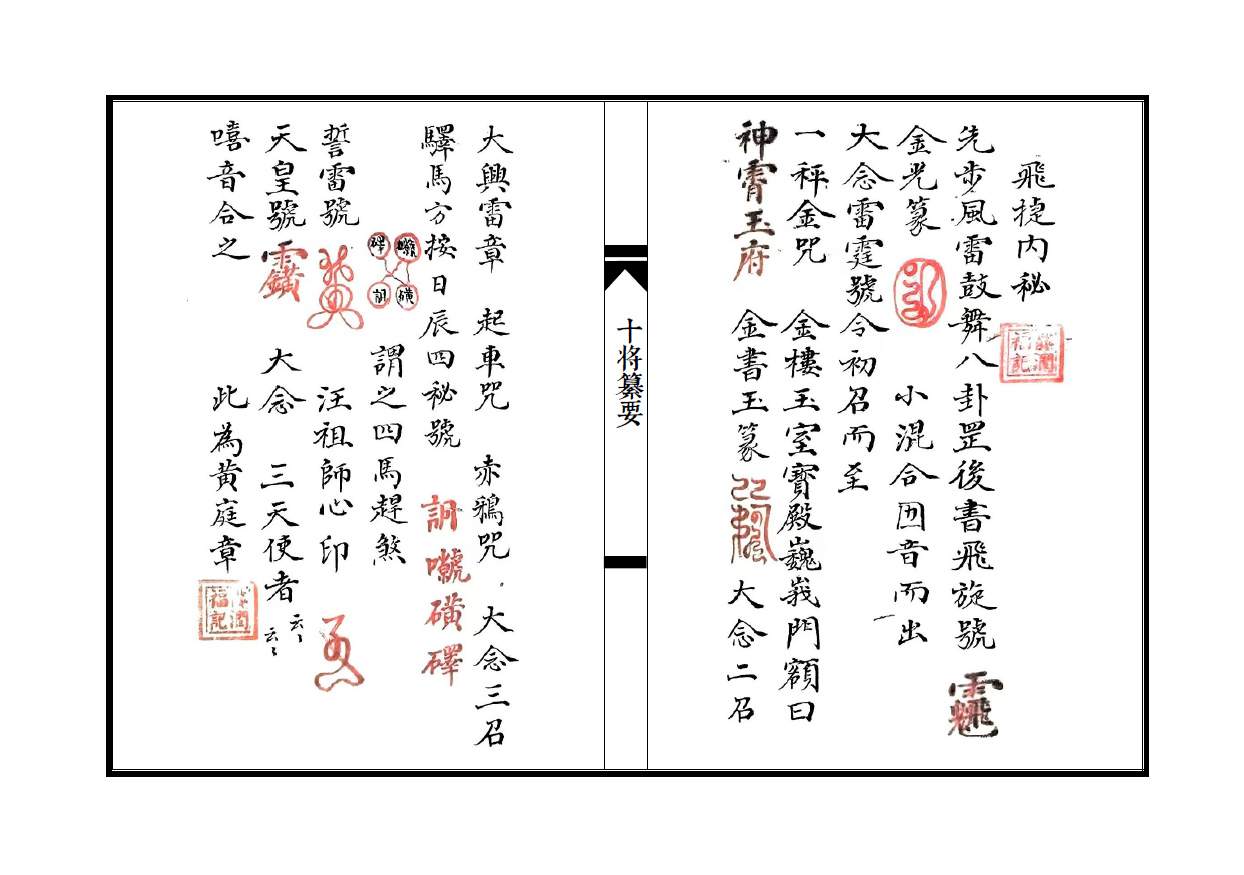 飛捷内秘
先步風雷鼓舞八卦罡後書飛旋號
金光篆 小混合囬音而出
大念雷霆號令初召而至
一秤金咒 金樓玉室寶殿巍峩門額曰
神霄玉府 金書玉篆 大念二召
十将纂要
大興雷章 起車咒 赤鴉咒 大念三召
驛馬方按日辰四秘號
謂之四馬趕煞
誓雷號 汪祖師心印
天皇號 大念 三天使者 云云
嘻音合之 此為黄庭章